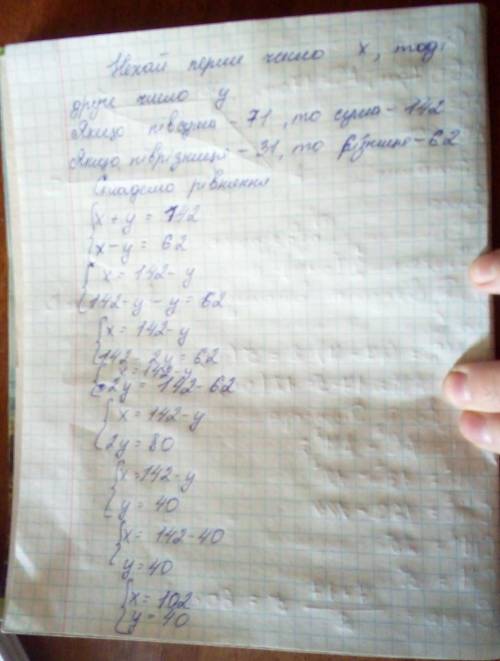 Нехай перше число x, тоді
друге число y
Якщо півсума - 71, то сума - 142
Якщо піврізниця - 31, то різниця - 62
Складемо рівняння
{ x + y = 142
{ x - y = 62
{ x = 142 - y
{ 142 - y - y = 62
{ x = 142 - y
{ 142 - 2y = 62
{ x = 142 - y
{ 2y = 142 - 62
{ x = 142 - y
{ 2y = 80
{ x = 142 - y
{ y = 40
{ x = 142 - 40
{ y = 40
{ x = 102
{ y = 40